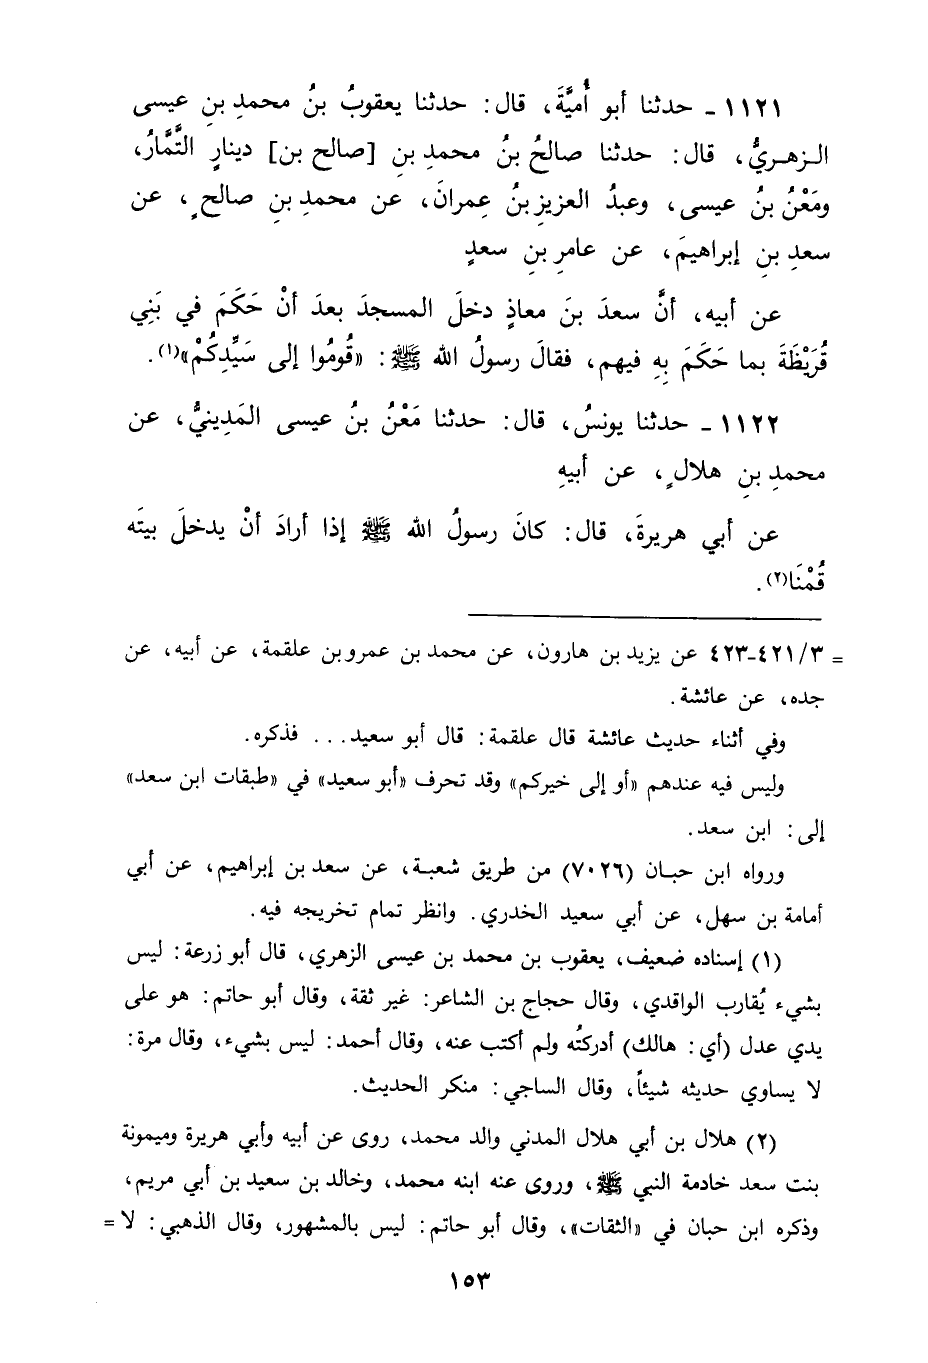 ١١٢١ ـ حدثنا أبو أُميَّةَ، قال: حدثنا يعقوبُ بنُ محمدِ بنِ عيسى
الـزهـريُّ، قال: حدثنا صالحُ بنُ محمدِ بنِ [صالح بن] دينارٍ التَّمَّارُ،
ومَعْنُ بنُ عيسى، وعبدُ العزيزِ بنُ عِمرانَ، عن محمدِ بنِ صالحٍ، عن
سعدِ بنِ إبراهيمَ، عن عامرِ بنِ سعدٍ
عن أبيه، أنَّ سعدَ بنَ معاذٍ دخلَ المسجدَ بعدَ أنْ حَكَمَ في بَنِي
قُرَيْظَةَ بما حَكَمَ بِهِ فيهم، فقالَ رسولُ الله ﷺ: «قُومُوا إلى سَيِّدِكُمْ»(١).
١١٢٢ ـ حدثنا يونسُ، قال: حدثنا مَعْنُ بنُ عيسى المَدِينيُّ، عن
محمدِ بنِ هلالٍ، عن أبيهِ
عن أبي هريرةَ، قال: كانَ رسولُ الله ﷺ إذا أرادَ أنْ يدخلَ بيتَه
قُمْنَا(٢).
= ٣/٤٢١ـ٤٢٣ عن يزيد بن هارون، عن محمد بن عمرو بن علقمة، عن أبيه، عن
جده، عن عائشة.
وفي أثناء حديث عائشة قال علقمة: قال أبو سعيد... فذكره.
وليس فيه عندهم «أو إلى خيركم» وقد تحرف «أبو سعيد» في «طبقات ابن سعد»
إلى: ابن سعد.
ورواه ابن حبـان (٧٠٢٦) من طريق شعبـة، عن سعد بن إبراهيم، عن أبي
أمامة بن سهل، عن أبي سعيد الخدري. وانظر تمام تخريجه فيه.
(١) إسناده ضعيف، يعقوب بن محمد بن عيسى الزهري، قال أبو زرعة: ليس
بشيء يُقارب الواقدي، وقال حجاج بن الشاعر: غير ثقة، وقال أبو حاتم: هو على
يدي عدل (أي: هالك) أدركتُه ولم أكتب عنه، وقال أحمد: ليس بشيء، وقال مرة:
لا يساوي حديثه شيئاً، وقال الساجي: منكر الحديث.
(٢) هلال بن أبي هلال المدني والد محمد، روى عن أبيه وأبي هريرة وميمونة
بنت سعد خادمة النبي ﷺ، وروى عنه ابنه محمد، وخالد بن سعيد بن أبي مريم،
وذكره ابن حبان في «الثقات»، وقال أبو حاتم: ليس بالمشهور، وقال الذهبي: لا =
١٥٣